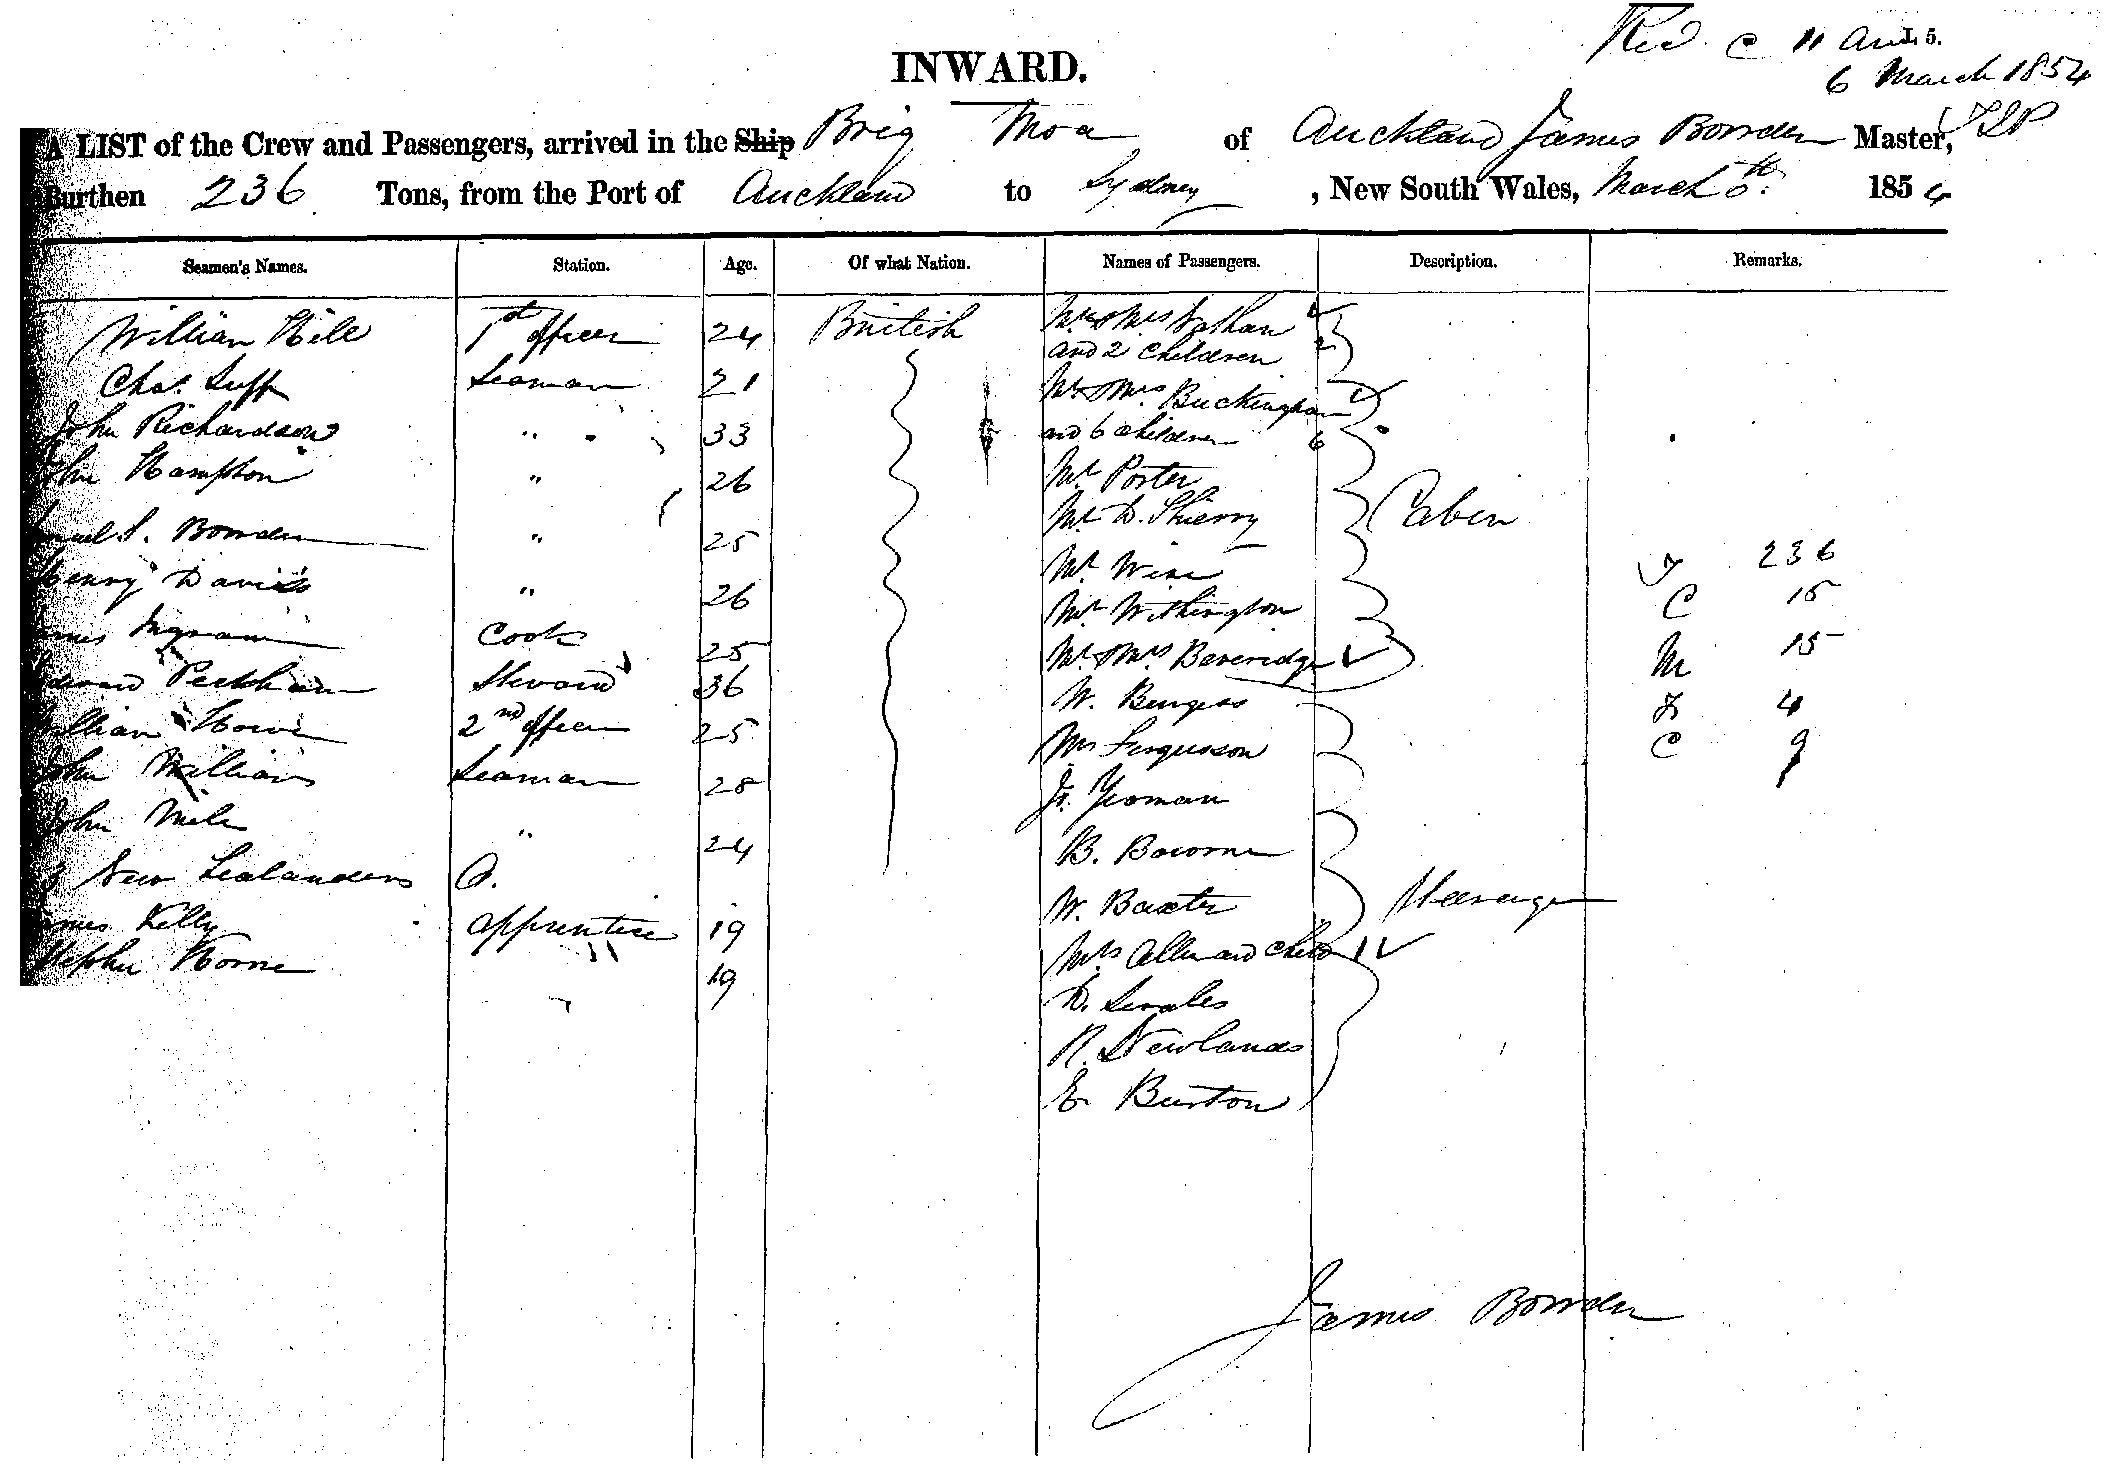 Recd. C 11 am L 5.
6 March 1854
INWARD.
A LIST of the Crew and Passengers, arrived in the Ship Brig Moa of Auckland James Bowden Master,
Burthen 236 Tons, from the Port of Auckland to Sydney, New South Wales, March 6th. 1854
Seamen's Names. Station. Age. Of what Nation. Names of Passengers. Description. Remarks.
William Hill 1st Officer 24 British Mr & Mrs Nathan
and 2 Children 2
Chas. Luff Seaman 21 Mr & Mrs Buckingham
John Richardson " 33 and 6 children 6
John Hampton " 26 Mr Porter
Mr D. Thierry Cabin
S. Bowden " 25
Mr Wise 236
Henry Davis " 26 Mr Withington C 15
James Ingram Cook 25 Mr & Mrs Beveridge M 15
Peckham Steward 36 W. Burgess F 4
William Howe 2nd Officer 25 Mrs Fergusson C 9
John Williams Seaman 28 Yeoman
John " 24 B. Bourne
New Zealanders O. W. Baxter Steerage
James Kelly apprentice 19 Mrs Allen and Child 1
Stephen Horne " 19 D. Scales
R. Newlands
E. Burton
James Bowden